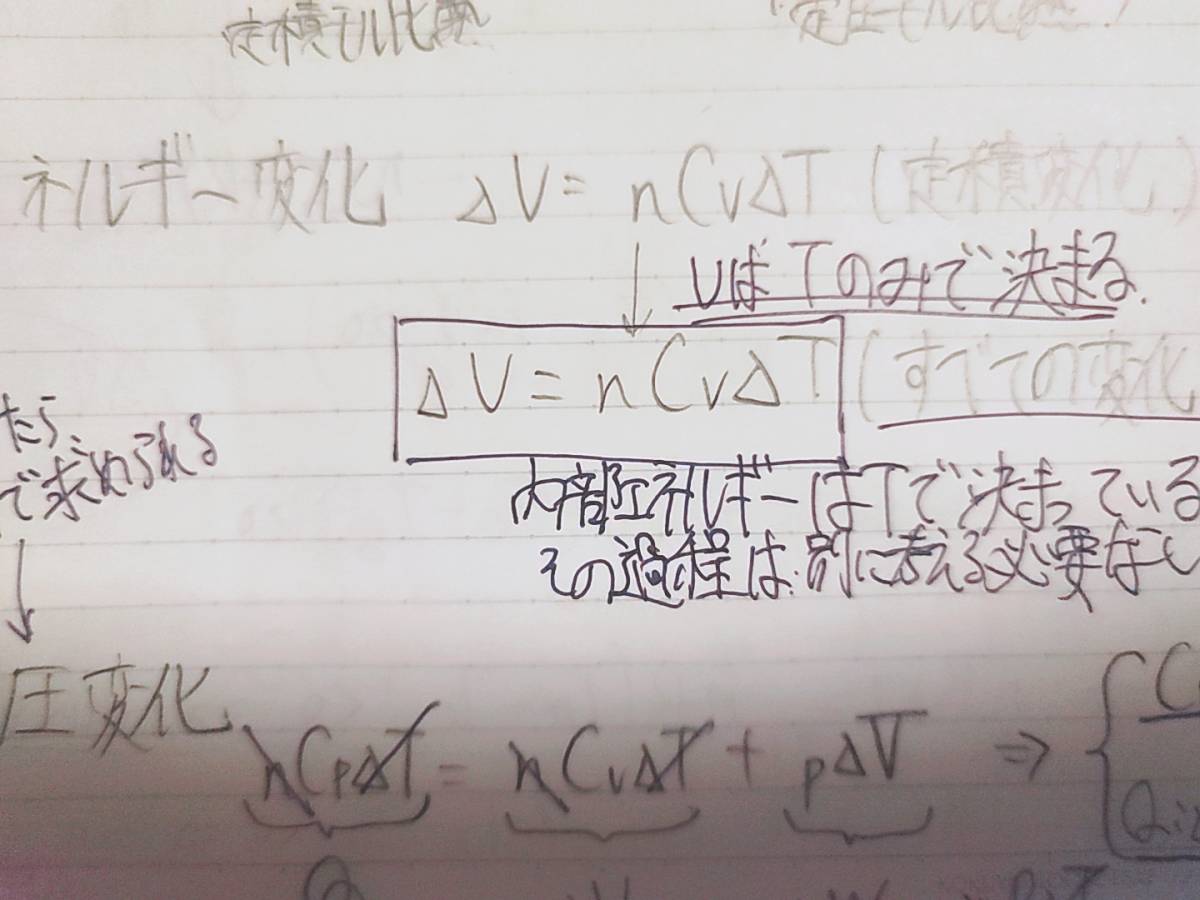 定積モル比熱 定圧モル比熱
ネルギー変化 ΔU = nCvΔT (定積変化)
UはTのみで決まる.
ΔU = nCvΔT (すべての変化
たら
で求められる
内部エネルギーはTで決まっている
その過程は.別に考える必要なし
圧変化
nCpΔT = nCvΔT + pΔV ⇒ {
Q